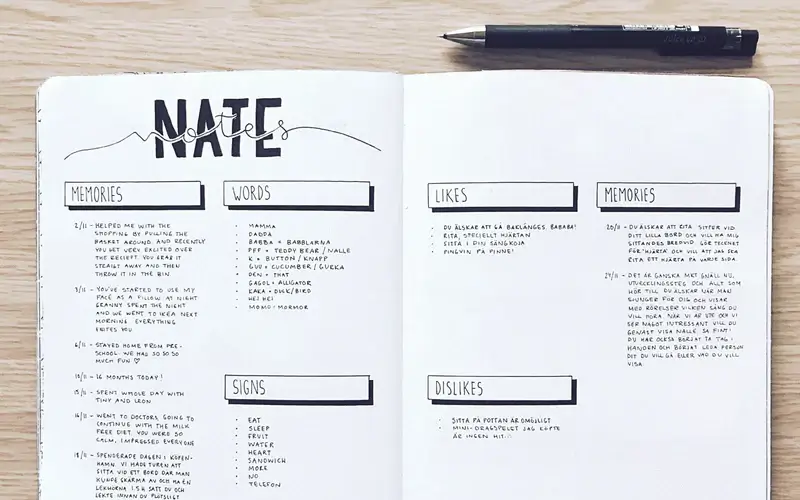 NATE
notes
MEMORIES
2/11 - HELPED ME WITH THE
SHOPPING BY PULLING THE
BASKET AROUND. AND RECENTLY
YOU GET VERY EXCITED OVER
THE RECIEPT. YOU GRAB IT
STRAIGHT AWAY AND THEN
THROW IT IN THE BIN.
3/11 - YOU'VE STARTED TO USE MY
FACE AS A PILLOW AT NIGHT
GRANNY SPENT THE NIGHT
AND WE WENT TO IKEA NEXT
MORNING. EVERYTHING
EXITES YOU
6/11 - STAYED HOME FROM PRE-
SCHOOL. WE HAD SO SO SO
MUCH FUN ♡
10/11 - 16 MONTHS TODAY!
15/11 - SPENT WHOLE DAY WITH
TINY AND LEON
16/11 - WENT TO DOCTORS, GOING TO
CONTINUE WITH THE MILK
FREE DIET. YOU WERE SO
CALM, IMPRESSED EVERYONE
18/11 - SPENDERADE DAGEN I KÖPEN-
HAMN. VI HADE TUREN ATT
SITTA VID ETT BORD DÄR MAN
KUNDE SKÄRMA AV OCH HA EN
LEKHÖRNA. 1,5 H SATT DU OCH
LEKTE INNAN DU PLÖTSLIGT
WORDS
• MAMMA
• DADDA
• BABBA = BABBLARNA
• PFF = TEDDY BEAR / NALLE
• K = BUTTON / KNAPP
• = CUCUMBER / GURKA
• DEN = THAT
• GAGOL = ALLIGATOR
• = BIRD
• HEJ HEJ
• MOMO = MORMOR
SIGNS
• EAT
• SLEEP
• FRUIT
• WATER
• HEART
• SANDWICH
• MORE
• NO
• TELEFON
LIKES
• DU ÄLSKAR ATT GÅ BAKLÄNGES BABABA!
• RITA, SPECIELLT HJÄRTAN
• SITTA I DIN SÄNGKOJA
• PINGVIN PÅ PINNE!
DISLIKES
• SITTA PÅ POTTAN ÄR OMÖJLIGT
• MINI-DRAGSPELET JAG KÖPTE
ÄR INGEN HIT
MEMORIES
20/11 - DU ÄLSKAR ATT RITA. SITTER VID
DITT LILLA BORD OCH VILL HA MIG
SITTANDES BREDVID. GÖR TECKNET
FÖR "HJÄRTA" OCH VILL ATT JAG SKA
RITA ETT HJÄRTA PÅ VARJE SIDA.
29/11 - DET ÄR GANSKA MKT GNÄLL NU,
UTVECKLINGSSTEG OCH ALLT SOM
HÖR TILL. DU ÄLSKAR NÄR MAN
SJUNGER FÖR DIG OCH VISAR
MED RÖRELSER VILKEN SÅNG DU
VILL HÖRA. NÄR VI ÄR UTE OCH VI
SER NÅGOT INTRESSANT VILL DU
GENAST VISA NALLE. SÅ FINT!
DU HAR OCKSÅ BÖRJAT TA TAG I
HANDEN OCH BÖRJAT LEDA PERSON
DIT DU VILL GÅ ELLER VAD DU VILL
VISA